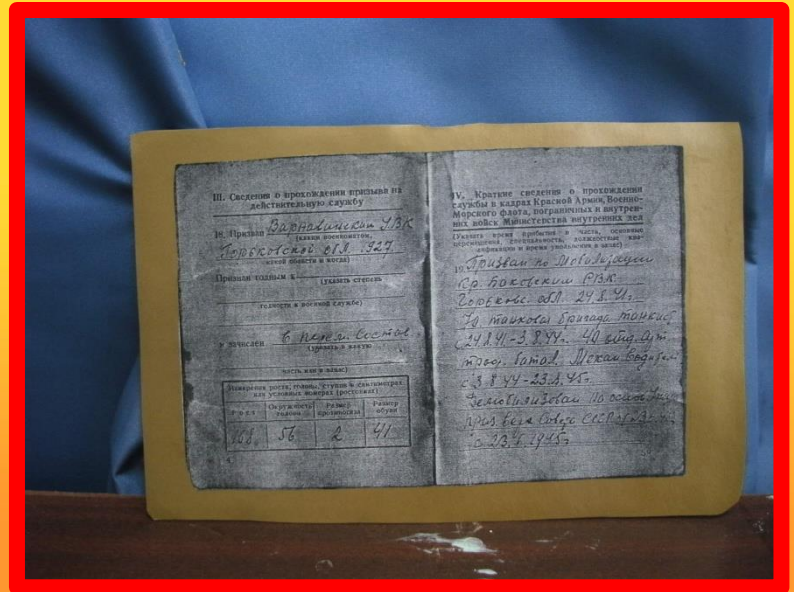 III. Сведения о прохождении призыва на
действительную службу
18. Призван Варнавинским УВК
(каким военкоматом,
Горьковской обл. 1927
какой области и когда)
Признан годным к
(указать степень
годности к военной службе)
и зачислен в перем. Состав
(указать в какую
часть или в запас)
Измерения роста, головы, ступни в сантиметрах
или условных номерах (ростовках)
Рост Окружность головы Размер противогаза Размер обуви
168 56 2 41
IV. Краткие сведения о прохождении
службы в кадрах Красной Армии, Военно-
Морского флота, пограничных и внутрен-
них войск Министерства внутренних дел
(Указать время прибытия в часть, основные
перемещения, специальность, должностные ква-
лификации и время увольнения в запас)
19. Призван по Мобилизации
Кр. Баковским РВК
Горьковс. обл. 24.8.41г.
танковая бригада танкист
с 24.8.41-3.8.44г. 40 отд.
батал. Механ. Водителем
с 3.8.44-23. 45г.
Демобилизован На основ.
СССР
с 23. 1945г.